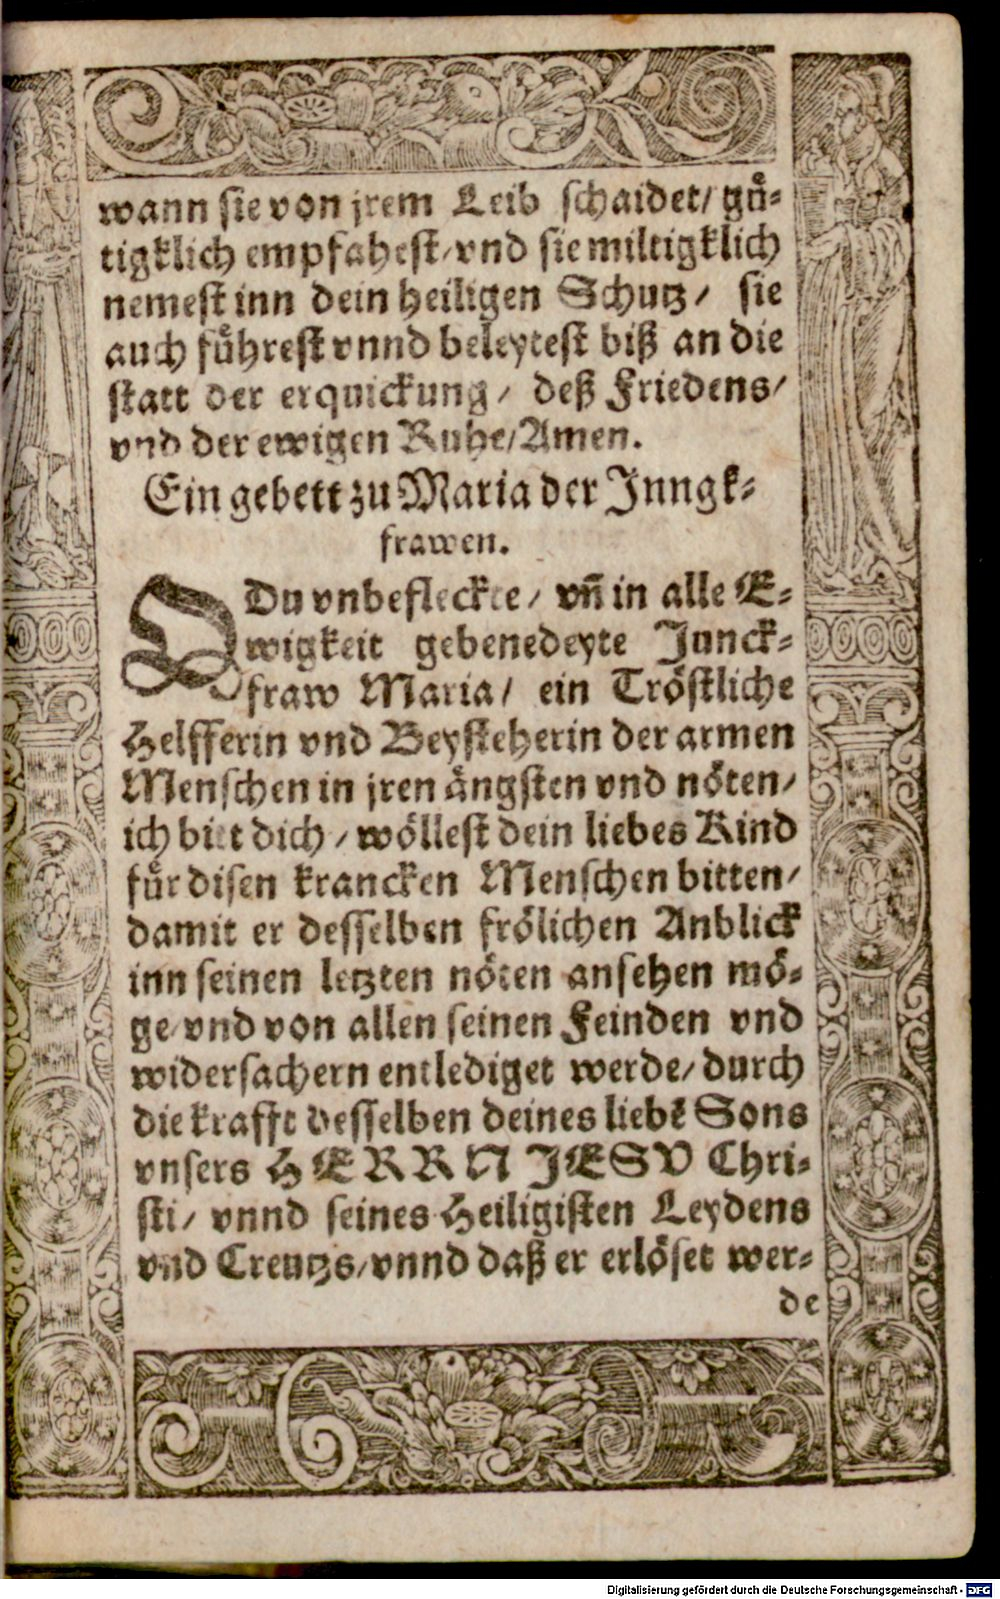 wann sie von jrem Leib schaidet/ gü-
tigklich empfahest/ vnd sie miltigklich
nemest inn dein heiligen Schutz/ sie
auch führest vnnd beleytest biß an die
statt der erquickung/ deß Friedens/
vnd der ewigen Ruhe/ Amen.
Ein gebett zu Maria der Jungk-
frawen.
O Du vnbefleckte/ vñ in alle E-
wigkeit gebenedeyte Junck-
fraw Maria/ ein Tröstliche
Helfferin vnd Beysteherin der armen
Menschen in jren ängsten vnd nöten/
ich bitt dich/ wöllest dein liebes Kind
für disen krancken Menschen bitten/
damit er desselben frölichen Anblick
inn seinen letzten nöten ansehen mö-
ge/ vnd von allen seinen Feinden vnd
widersachern entlediget werde/ durch
die krafft desselben deines liebē Sons
vnsers HERRN JESV Chri-
sti/ vnnd seines Heiligisten Leydens
vnd Creutzs/ vnnd daß er erlöset wer-
de
Digitalisierung gefördert durch die Deutsche Forschungsgemeinschaft - DFG